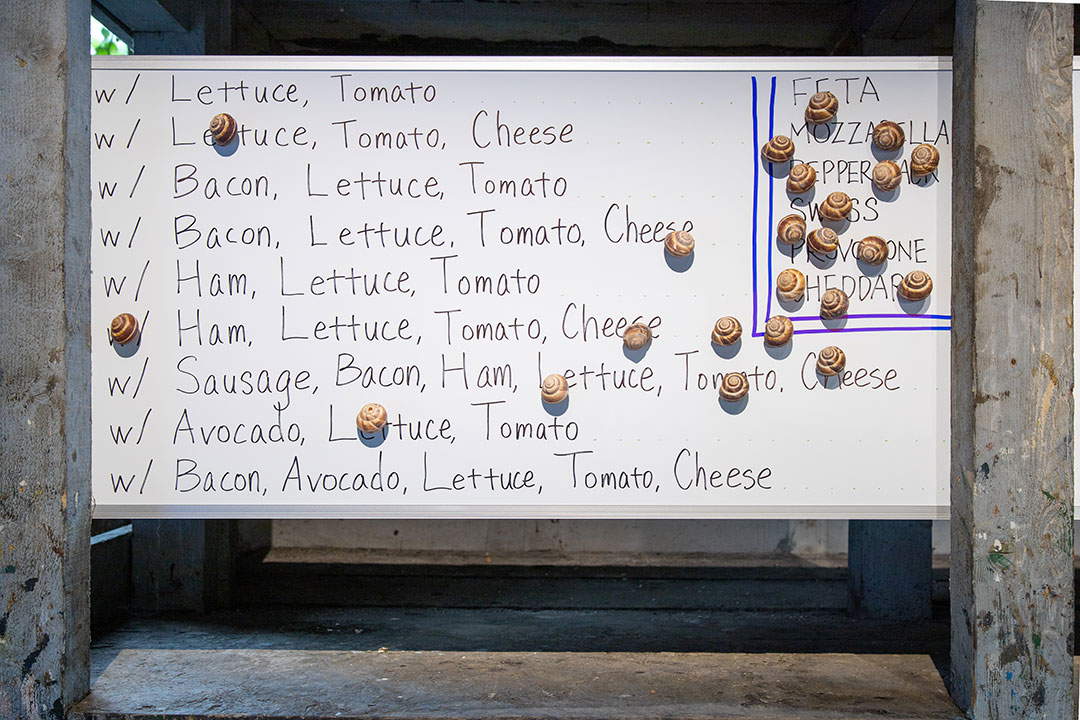 w/ Lettuce, Tomato
w/ Lettuce, Tomato, Cheese
w/ Bacon, Lettuce, Tomato
w/ Bacon, Lettuce, Tomato, Cheese
w/ Ham, Lettuce, Tomato
w/ Ham, Lettuce, Tomato, Cheese
w/ Sausage, Bacon, Ham, Lettuce, Tomato, Cheese
w/ Avocado, Lettuce, Tomato
w/ Bacon, Avocado, Lettuce, Tomato, Cheese
FETA
MOZZARELLA
PEPPERJACK
SWISS
PROVOLONE
CHEDDAR